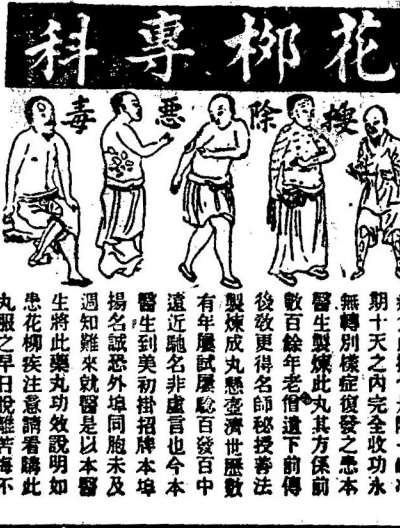 花柳專科
搜除惡毒
期十天之內完全收功永
無轉別樣症復發之患本
醫生製煉此丸其方係前
數百餘年老僧遺下前傳
後教更得名師秘授善法
製煉成丸懸壺濟世歷數
有年屢試屢驗百發百中
遠近馳名非虛言也今本
醫生到美初掛招牌本埠
揚名誠恐外埠同胞未及
週知難來就醫是以本醫
生將此藥丸功效說明如
患花柳疾注意請看購此
丸服之早日脫離苦海不